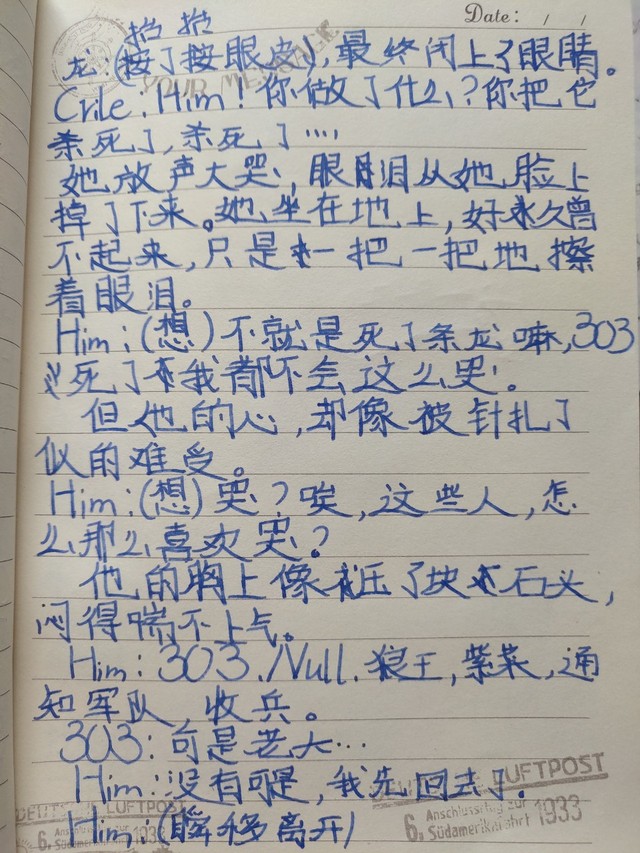 Date: / /
抬抬
龙:(按了按眼皮),最终闭上了眼睛。
YOUR MESSAGE
Crile:Him!你做了什么?你把它
杀死了,杀死了····
她放声大哭,眼泪从她脸上
掉了下来。她坐在地上,好久曾
不起来,只是一把一把地擦
着眼泪。
Him:(想)不就是死了条龙嘛,303
死了我都不会这么哭。
但他的心,却像被针扎了
似的难受。
Him:(想)哭?唉,这些人,怎
么那么喜欢哭?
他的胸上像压了块石头,
闷得喘不上气。
Him:303./Null.狼王,紫菜,通
知军队,收兵。
303:可是老大…
Him:没有可是,我先回去了。
DEUTSCHE LUFTPOST
LUFTPOST
Him:(瞬移离开)
6. Anschlussflug zur Südamerikafahrt 1933
6. Anschlussflug zur Südamerikafahrt 1933